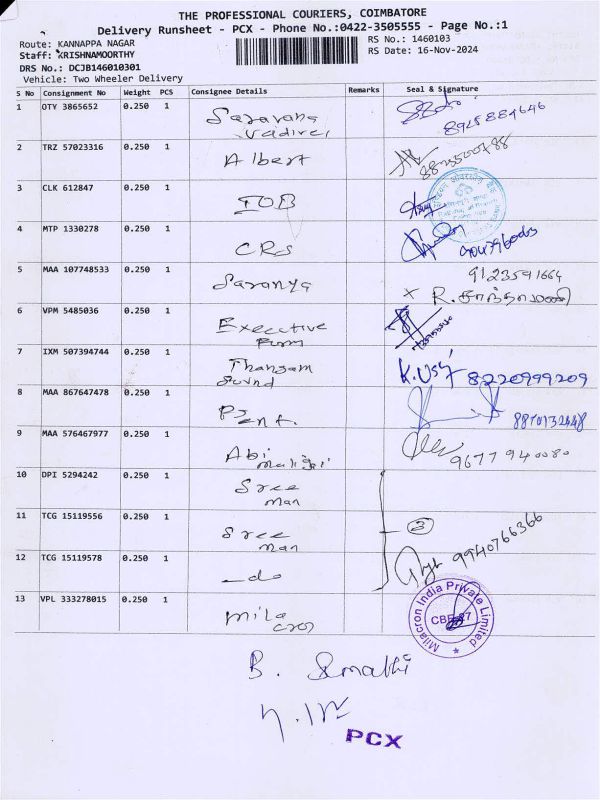 THE PROFESSIONAL COURIERS, COIMBATORE
Delivery Runsheet - PCX - Phone No.:0422-3505555 - Page No.:1
Route: KANNAPPA NAGAR
RS No.: 1460103
Staff: KRISHNAMOORTHY
RS Date: 16-Nov-2024
DRS No.: DCJB146010301
Vehicle: Two Wheeler Delivery
S No Consignment No Weight PCS Consignee Details Remarks Seal & Signature
1 OTY 3865652 0.250 1 Saravana
Vadivel
2 TRZ 57023316 0.250 1 Albert
3 CLK 612847 0.250 1 IOB
4 MTP 1330278 0.250 1 CRS
5 MAA 107748533 0.250 1 Saranya 9123591664
x R. சாந்தாமணி
6 VPM 5485036 0.250 1 Executive
7 IXM 507394744 0.250 1 Thangam K. 8220999209
8 MAA 867647478 0.250 1
9 MAA 576467977 0.250 1 Abi 9677940080
10 DPI 5294242 0.250 1 Sree
man
11 TCG 15119556 0.250 1 Sree
man
3
9940766366
12 TCG 15119578 0.250 1 - do
13 VPL 333278015 0.250 1 Mila
cron
Milacron India Private Limited
B.
PCX